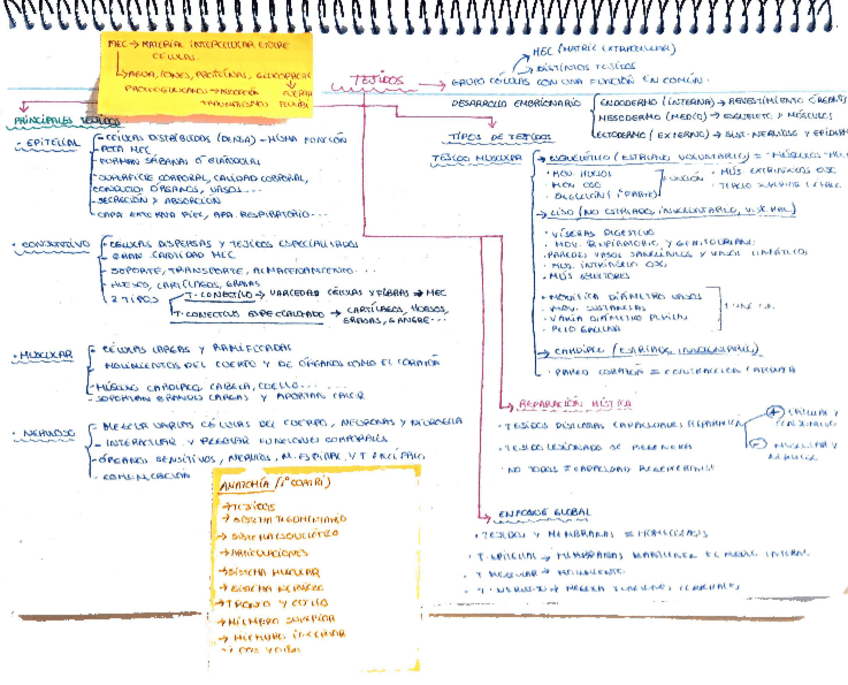 MEC → MATERIAL INTERCELULAR ENTRE
CÉLULAS.
→ AGUA, IONES, PROTEÍNAS, GLUCOPROTE
PROTEOGLICANOS → ABSORCIÓN
TRAUMATISMOS
TEJIDOS → GRUPO CÉLULAS CON UNA FUNCIÓN EN COMÚN.
MEC (MATRIZ EXTRACELULAR)
DISTINTOS TEJIDOS
DESARROLLO EMBRIONARIO
ENDODERMO (INTERNA) → REVESTIMIENTO ÓRGANOS
MESODERMO (MEDIO) → ESQUELETO Y MÚSCULOS
ECTODERMO (EXTERNO) → SIST. NERVIOSO Y EPIDERM
PRINCIPALES TEJIDOS
· EPITELIAL
- CÉLULAS DISTRIBUIDAS (DENSA) - MISMA FUNCIÓN
- POCA MEC
- FORMAN SÁBANAS O GLANDULAS
- SUPERFICIE CORPORAL, CAVIDAD CORPORAL,
CONDUCTO ÓRGANOS, VASOS...
- SECRECIÓN Y ABSORCIÓN
- CAPA EXTERNA PIEL, APA. RESPIRATORIO...
· CONJUNTIVO
- CÉLULAS DISPERSAS Y TEJIDOS ESPECIALIZADOS
- GRAN CANTIDAD MEC
- SOPORTE, TRANSPORTE, ALMACENAMIENTO...
- HUESO, CARTÍLAGOS, GRASAS
- 2 TIPOS
T. CONECTIVO → VARIEDAD CÉLULAS Y FIBRAS → MEC
T. CONECTIVO ESPECIALIZADO → CARTÍLAGOS, HUESOS,
GRASAS, SANGRE...
· MUSCULAR
- CÉLULAS LARGAS Y RAMIFICADAS
- MOVIMIENTOS DEL CUERPO Y DE ÓRGANOS COMO EL CORAZÓN
- MÚSCULO CARDIACO, CABEZA, CUELLO...
- SOPORTAN GRANDES CARGAS Y APORTAN CALOR
· NERVIOSO
- MEZCLA VARIAS CÉLULAS DEL CUERPO, NEURONAS Y NEUROGLIA
- INTERACTUAR Y REGULAR FUNCIONES CORPORALES
- ÓRGANOS SENSITIVOS, NERVIOS, M. ESPINAL Y T. ENCÉFALO
- COMUNICACIÓN
TIPOS DE TEJIDOS
TEJIDO MUSCULAR
→ ESQUELÉTICO (ESTRIADO, VOLUNTARIO) =
· MOV. HUESOS
· MOV. OSO
· DEGLUCIÓN (1ª PARTE)
FUNCIÓN
· MÚS EXTRÍNSECOS OJO
→ LISO (NO ESTRIADO, INVOLUNTARIO, VISCERAL)
· VÍSCERAS DIGESTIVO
· MOV. RESPIRATORIO, Y GENITOURINARI
· PAREDES VASOS SANGUÍNEOS Y VASOS LINFÁTICOS
· MUS. INTRÍNSECO OJO
· MÚS ERECTORES
· MODIFICA DIÁMETRO VASOS
· MOV. SUSTANCIAS
· VARÍA DIÁMETRO PUPILA
· PELO GALLINA
→ CARDIACO (ESTRIADO, INVOLUNTARIO)
· PARED CORAZÓN = CONTRACCIÓN
REPARACIÓN HÍSTICA
· TEJIDOS DISTINTAS CAPACIDADES REPARACIÓN
+ EPITELIAL Y
CONJUNTIVO
- MUSCULAR Y
NERVIOSO
· TEJIDO LESIONADO SE REGENERA
· NO TODOS = CAPACIDAD
ENFOQUE GLOBAL
· TEJIDOS Y MEMBRANAS = HOMEOSTASIS
· T. EPITELIAL → MEMBRANAS MANTIENEN EL MEDIO INTERNO
· T. MUSCULAR → MOVIMIENTO
· T. NERVIOSO →
ANATOMÍA (1º COMÚN)
→ TEJIDOS
→ SISTEMA TEGUMENTARIO
→ SISTEMA ESQUELÉTICO
→ ARTICULACIONES
→ SISTEMA MUSCULAR
→ SISTEMA NERVIOSO
→ TRONCO Y CUELLO
→ MIEMBRO SUPERIOR
→ MIEMBRO INFERIOR